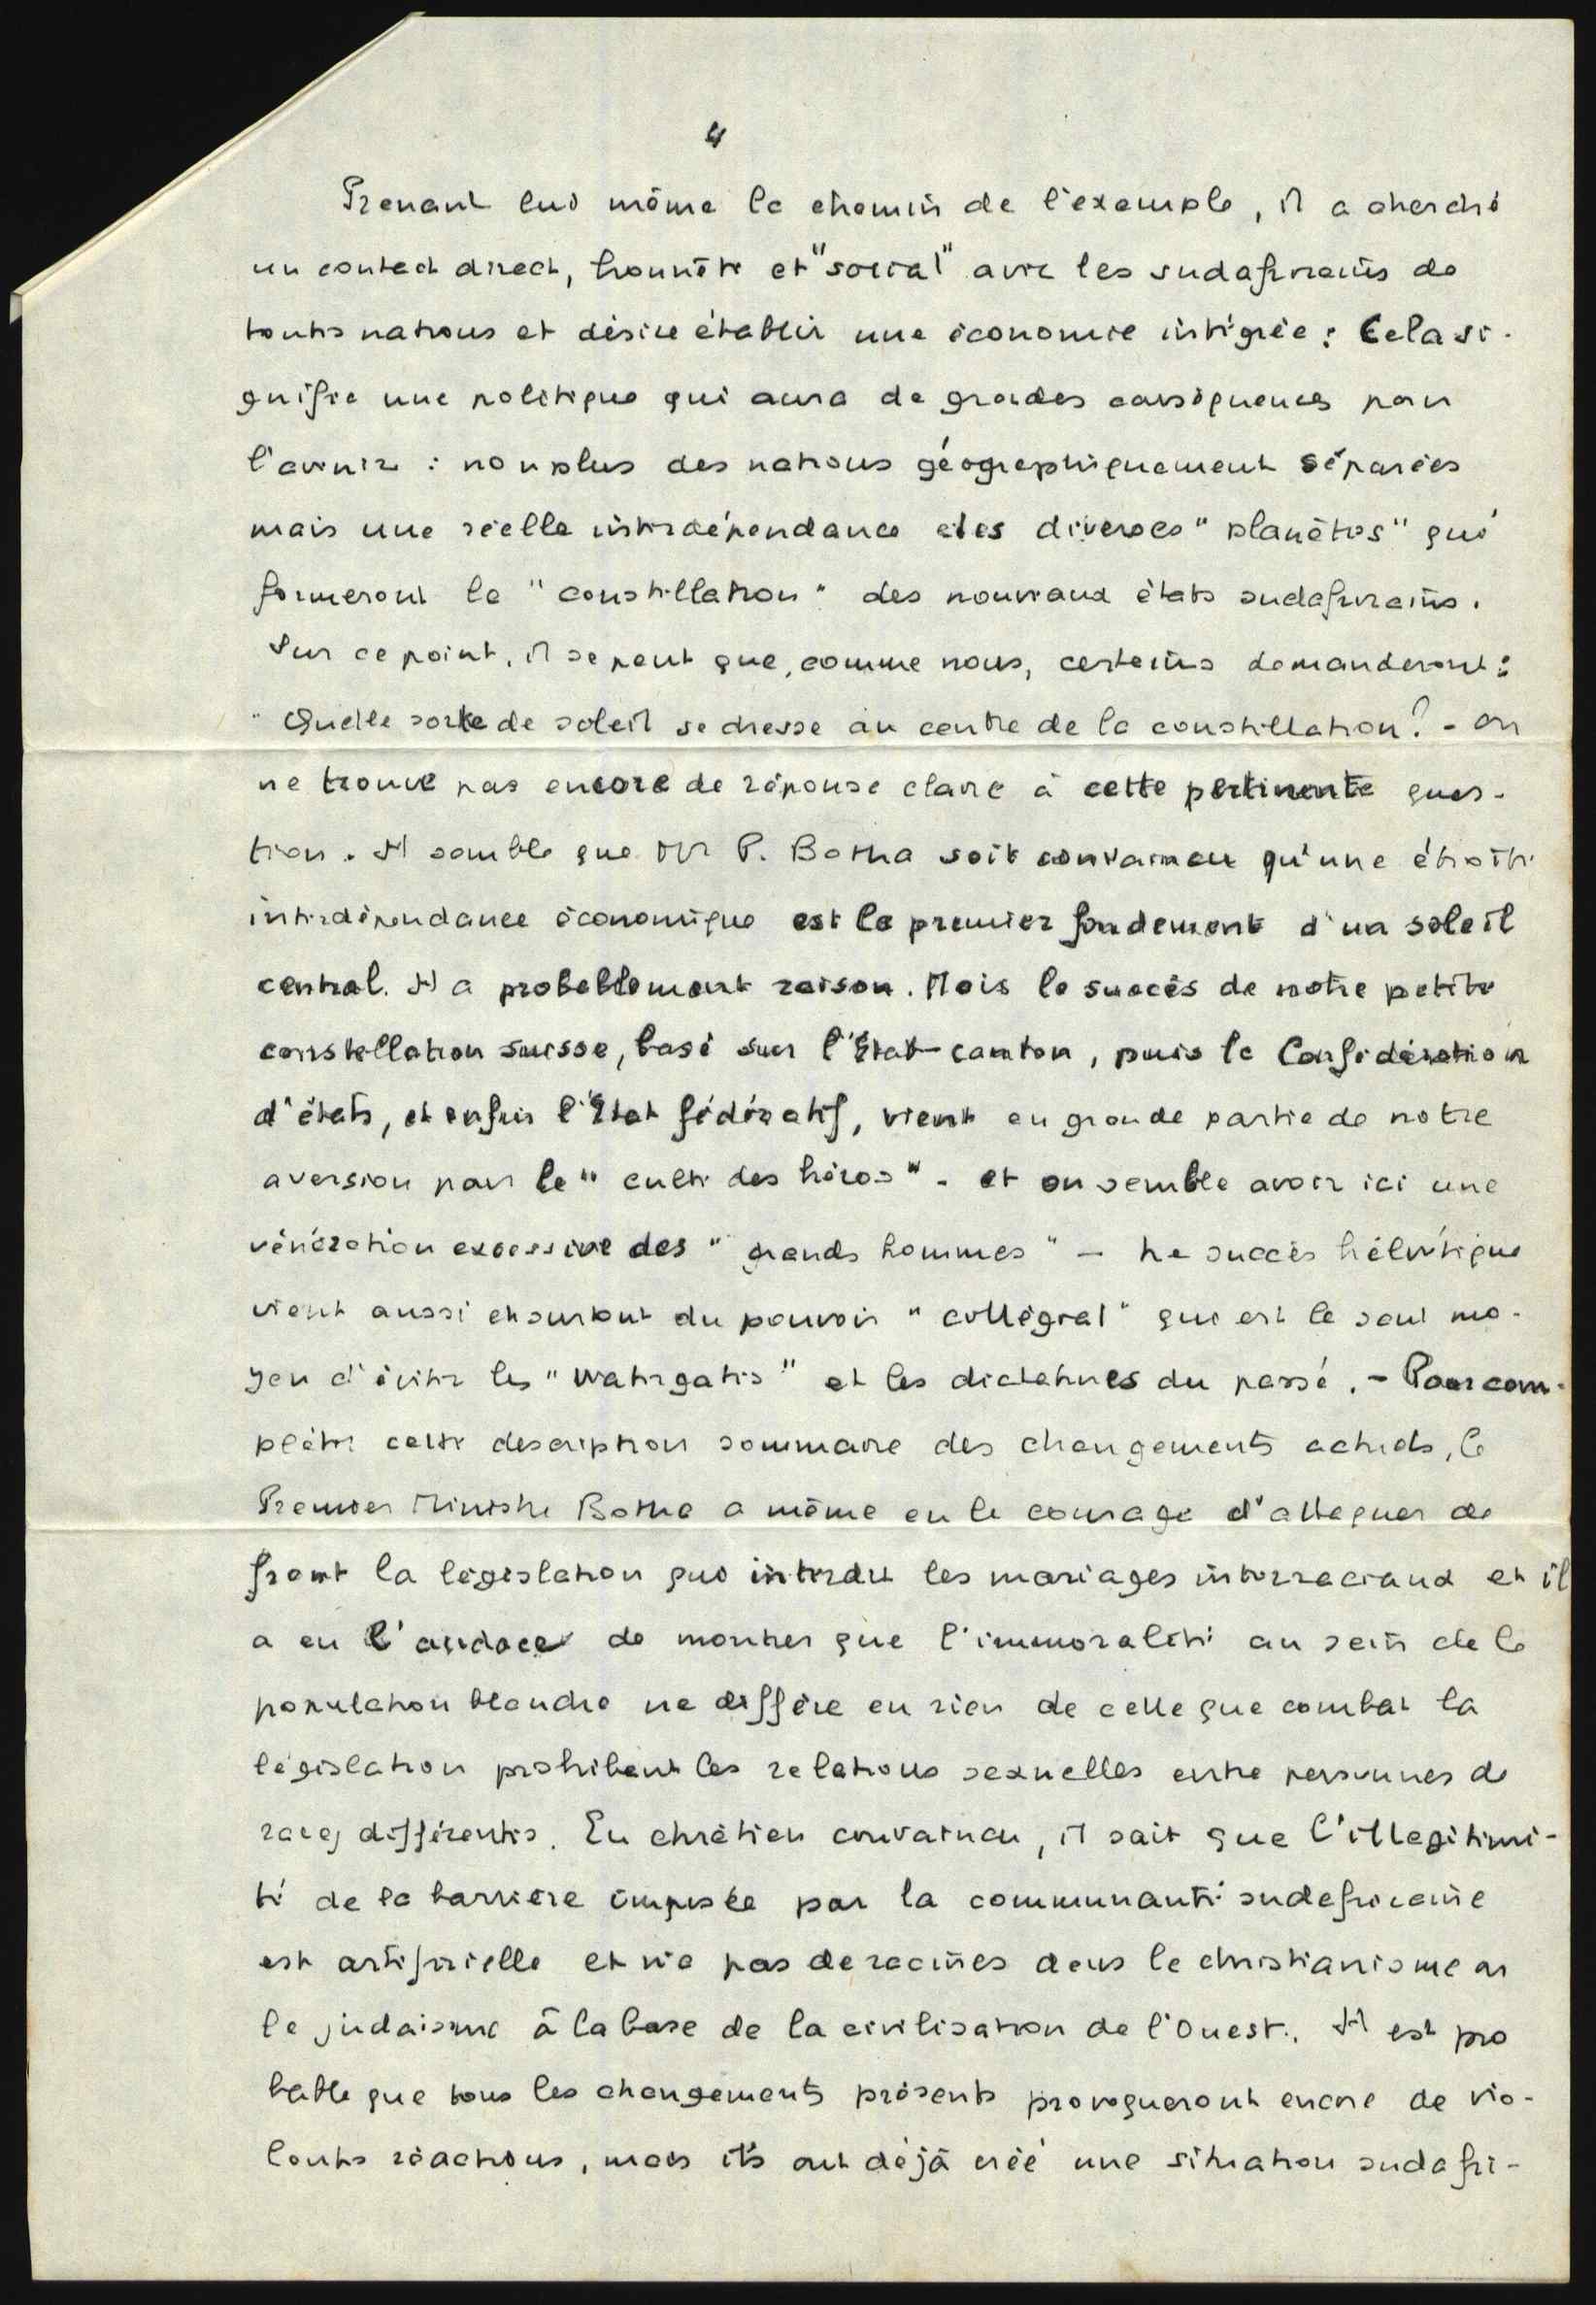 4
Prenant lui même le chemin de l'exemple, il a cherché
un contact direct, honnête et "social" avec les sudafricains de
toutes nations et désire établir une économie intégrée : Cela si-
gnifie une politique qui aura de grandes conséquences pour
l'avenir : non plus des nations géographiquement séparées
mais une réelle interdépendance des diverses "planètes" qui
formeront la "constellation" des nouveaux états sudafricains.
Sur ce point, il se peut que, comme nous, certains demanderont :
"Quelle sorte de soleil se dresse au centre de la constellation? - On
ne trouve pas encore de réponse claire à cette pertinente ques-
tion. Il semble que Mr P. Botha soit convaincu qu'une étroite
interdépendance économique est le premier fondement d'un soleil
central. Il a probablement raison. Mais le succès de notre petite
constellation suisse, basé sur l'État-canton, puis la Confédération
d'états, et enfin l'État fédératif, vient en grande partie de notre
aversion pour le "culte des héros" - et on semble avoir ici une
vénération excessive des "grands hommes" - Le succès helvétique
vient aussi et surtout du pouvoir "collégial" qui est le seul mo-
yen d'éviter les "Watergates" et les dictatures du passé. - Pour com-
pléter cette description sommaire des changements actuels, le
Premier Ministre Botha a même eu le courage d'attaquer de
front la législation qui interdit les mariages interraciaux et il
a eu l'audace de montrer que l'immoralité au sein de la
population blanche ne diffère en rien de celle que combat la
législation prohibant les relations sexuelles entre personnes de
races différentes. En chrétien convaincu, il sait que l'illegitimi-
té de la barrière imposée par la communauté sudafricaine
est artificielle et n'a pas de racines dans le christianisme ou
le judaisme à la base de la civilisation de l'Ouest. Il est pro
bable que tous les changements présents provoqueront encore de vio-
lentes réactions, mais ils ont déjà créé une situation sudafri-